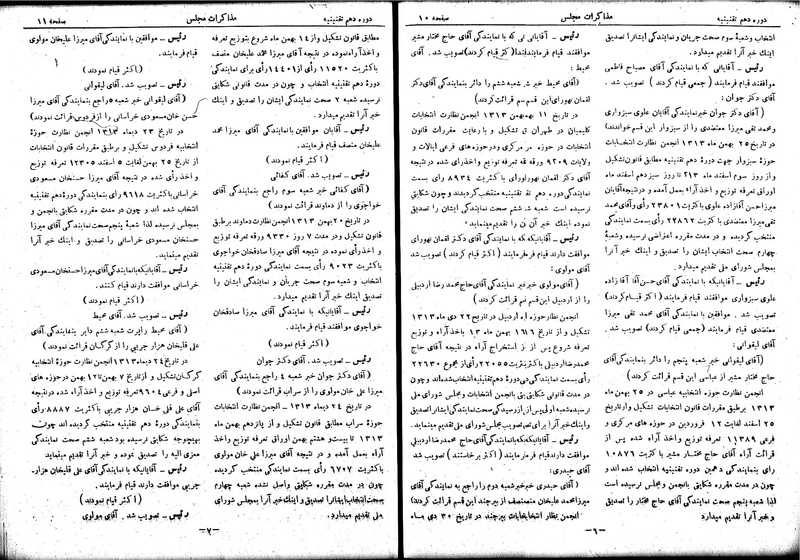 دوره دهم تقنینیه
مذاکرات مجلس
صفحه ۱۰
انتخاب و شعبهٔ سوم صحت جریان و نمایندگی ایشانرا تصدیق
اینک خبر آنرا تقدیم میدارد.
رئیس ـ آقایانی که با نمایندگی آقای مصباح فاطمی
موافقند قیام فرمایند ( جمعی قیام کردند ) تصویب شد.
آقای دکتر جوان:
(آقای دکتر جوان خبر نمایندگی آقایان علوی سبزواری
و محمد تقی میرزا معتضدی را از سبزوار این قسم خواندند)
در تاریخ ۲۵ بهمن ماه ۱۳۱۳ انجمن نظارت انتخابات
حوزه سبزوار جهت دورهٔ دهم تقنینیه مطابق قانون تشکیل
و از روز سوم اسفند ماه ۲۱۳ تا روز سیزدهم اسفند ماه
اوراق تعرفه توزیع و اخذ آراء بعمل آمده و در نتیجه آقایان
میرزا حسن آقازاده علوی با کثریت ۲۳۸۰۱ رأی و آقای محمد
تقی میرزا معتضدی با کثریت ۲۲۸۶۲ رأی بسمت نمایندگی
منتخب گردیده و در مدت مقرره اعتراضی نرسیده و شعبهٔ
چهارم صحت انتخاب ایشان را تصدیق و اینک خبر آنرا
بمجلس شورای ملی تقدیم میدارد.
رئیس ـ آقایانیکه با نمایندگی آقای حسن آقا آقازاده
علوی سبزواری موافقند قیام فرمایند ( اکثر قیام کردند)
تصویب شد. موافقین با نمایندگی آقای محمد تقی میرزا
معتضدی قیام فرمایند ( جمعی قیام کردند ) تصویب شد.
آقای لیقوانی:
(آقای لیقوانی خبر شعبه پنجم را دائر بنمایندگی آقای
حاج مختار مشیر از عباسی این قسم قرائت کردند)
انجمن نظارت حوزه انتخابیه عباسی در ۲۵ بهمن ماه
۱۳۱۳ برطبق مقررات قانون انتخابات تشکیل و از تاریخ
۲۵ اسفند لغایت ۱۲ فروردین در حوزه های مرکزی و
فرعی ۱۱۳۸۹ تعرفه توزیع واخذ آراء شده پس از
قرائت آراء آقای حاج مختار مشیر با کثریت ۱۰۸۷۶
رأی بنمایندگی دهمین دوره تقنینیه انتخاب شده اند و
چون در مدت مقرره شکایتی بانجمن و بمجلس نرسیده است
لذا شعبه پنجم صحت نمایندگی آقای حاج مختار را تصدیق
و خبر آنرا تقدیم میدارد
رئیس ـ آقایانی که با نمایندگی آقای حاج مختار مشیر
موافقند قیام فرمایند (اکثر قیام کردند) تصویب شد. آقای
محیط:
(آقای محیط خبر شعبه ششم را دائر بنمایندگی آقای دکتر
لقمان نهورای این قسم قرائت کردند)
در تاریخ ۱۱ بهمن ۱۳۱۳ انجمن نظارت انتخابات
کلیمیان در طهران تشکیل و با رعایت مقررات قانون
انتخابات در حوزه مرکزی و در حوزه های فرعی ایالات و
ولایات ۹۲۰۹ ورقه تعرفه توزیع و اخذ آراء شده در نتیجه
آقای دکتر لقمان نهورای با کثریت ۸۹۳۴ رأی بسمت
نمایندگی دوره دهم تقنینیه منتخب گردیدند و چون شکایتی
نرسیده است شعبه ششم صحت نمایندگی ایشان را تصدیق
نموده اینک خبر آن را تقدیم مینماید
رئیس ـ آقایانیکه که با نمایندگی آقای دکتر لقمان نهورای
موافقت دارند قیام فرمایند ( اکثر قیام کردند ) تصویب شد
آقای مولوی:
(آقای مولوی خبر نمایندگی آقای حاج محمد رضا اردبیل
را از اردبیل این قسم قرائت کردند )
انجمن نظار حوزه اردبیل در تاریخ ۲۲ دی ماه ۱۳۱۳
تشکیل و از تاریخ ۱۶ بهمن ماه ۱۳ باخذ آراء و توزیع
تعرفه شروع پس از استخراج آراء در نتیجه آقای حاج
محمد رضا اردبیل با کثریت ۲۲۰۵۵ رأی از مجموع ۲۲۶۳۰
رأی بسمت نمایندگی دوره دهم تقنینیه انتخاب شده اند و چون
در مدت قانونی شکایتی بانجمن انتخابات و مجلس شورای ملی
نرسیده شعبه اول پس از رسیدگی صحت نمایندگی ایشانرا تصدیق
و اینک خبر آنرا برای تصویب مجلس شورای ملی تقدیم مینماید.
رئیس ـ آقایانیکه با نمایندگی آقای حاج محمد رضا اردبیل
موافقت دارند قیام فرمایند ( اکثر برخاستند ) تصویب شد
آقای حیدری:
(آقای حیدری خبر شعبه دوم را راجع به نمایندگی آقای
میرزا محمد علیخان منصف از بیرجند این قسم قرائت کردند)
انجمن نظار انتخابات بیرجند در تاریخ ۳۰ دی ماه
ـ ۶ ـ
دوره دهم تقنینیه
مذاکرات مجلس
صفحه ۱۱
مطابق قانون تشکیل و از ۱۴ بهمن ماه شروع بتوزیع تعرفه
و اخذ آراء نموده در نتیجه آقای میرزا محمد علیخان منصف
باکثریت ۱۱۵۲۰ رأی از ۱۴۴۰۱ رأی برای نمایندگی
دوره دهم تقنینیه انتخاب و چون در مدت قانونی شکایتی
نرسیده شعبه ۲ صحت نمایندگی ایشان را تصدیق و اینک
خبر آنرا تقدیم میدارد.
رئیس ـ آقایان موافقین با نمایندگی آقای میرزا محمد
علیخان منصف قیام فرمایند.
(اکثر قیام نمودند)
رئیس ـ تصویب شد. آقای کفائی
(آقای کفائی خبر شعبه سوم راجع بنمایندگی آقای
خواجوی را از دماوند قرائت نمودند)
در تاریخ ۲۰ بهمن ۱۳۱۳ انجمن نظارت دماوند بر طبق
قانون تشکیل و در مدت ۷ روز ۹۳۳۰ ورقه تعرفه توزیع
و اخذ رأی نموده در نتیجه آقای میرزا صادقخان خواجوی
باکثریت ۹۰۲۳ رأی بسمت نمایندگی دوره دهم تقنینیه
انتخاب و شعبه سوم صحت جریان و نمایندگی ایشان را
تصدیق اینک خبر آنرا تقدیم میدارد.
رئیس ـ آقایانیکه با نمایندگی آقای میرزا صادقخان
خواجوی موافقند قیام فرمایند.
(اکثر قیام نمودند)
رئیس ـ تصویب شد. آقای دکتر جوان
(آقای دکتر جوان خبر شعبه ۴ راجع بنمایندگی آقای
میرزا علی خان موقر را از سراب قرائت نمودند)
در تاریخ ۲۴ دیماه ۱۳۱۳ انجمن نظارت انتخابات
حوزه سراب مطابق قانون تشکیل و از پانزدهم بهمن ماه
۱۳۱۳ تا بیست و هشتم بهمن اوراق تعرفه توزیع و اخذ
آراء بعمل آمده و در نتیجه آقای میرزا علی خان مولوی
باکثریت ۶۷۰۷ رأی بسمت نمایندگی منتخب گردیده
و چون در مدت مقرره شکایتی واصل نشده شعبه چهارم
صحت انتخاب ایشانرا تصدیق و اینک خبر آنرا بمجلس شورای
ملی تقدیم میدارد.
رئیس ـ موافقین با نمایندگی آقای میرزا علیخان مولوی
قیام فرمایند.
(اکثر قیام نمودند)
رئیس ـ تصویب شد. آقای لیقوانی
(آقای لیقوانی خبر شعبه ۵ راجع بنمایندگی آقای میرزا
حسن خان مسعودی خراسانی را از فردوس قرائت نمودند)
در تاریخ ۲۳ دیماه ۱۳۱۳ انجمن نظارت حوزهٔ
انتخابیه فردوس تشکیل و برطبق مقررات قانون انتخابات
از تاریخ ۲۵ بهمن لغایت ۵ اسفند ۱۲۳۰۵ تعرفه توزیع
و اخذ رأی شده در نتیجه آقای میرزا حسنخان مسعودی
خراسانی باکثریت ۹۶۱۸ رأی بنمایندگی دورهٔ دهم تقنینیه
انتخاب شده اند و چون در مدت مقرره شکایتی بانجمن و
بمجلس نرسیده لذا شعبهٔ پنجم صحت نمایندگی آقای میرزا
حسنخان مسعودی خراسانی را تصدیق و اینک خبر آنرا
تقدیم مینماید.
رئیس ـ آقایانیکه بانمایندگی آقای میرزا حسنخان مسعودی
خراسانی موافقت دارند قیام کنند.
(اکثر قیام نمودند)
رئیس ـ تصویب شد. آقای محیط
(آقای محیط راپرت شعبه ششم دایر بنمایندگی آقای
علی قلیخان هزار جریبی را از گرگان قرائت نمودند)
در تاریخ ۲۴ دیماه ۱۳۱۳ انجمن نظارت حوزهٔ انتخابیه
گرگان تشکیل و از تاریخ ۷ بهمن تا ۱۲ بهمن در حوزه های
اصلی و فرعی ۹۶۰۴ تعرفه توزیع و اخذ آراء شده در نتیجه
آقای علی قلی خان هزار جریبی باکثریت ۸۸۸۷ رأی
بنمایندگی دورهٔ دهم تقنینیه منتخب گردیده اند چون
بهیچوجه شکایتی نرسیده بود شعبه ششم صحت نمایندگی
معزی الیه را تصدیق نموده و خبر آنرا تقدیم مینماید
رئیس ـ آقایانیکه با نمایندگی آقای علی قلیخان هزار.
جریبی موافقت دارند قیام فرمایند.
(اکثر قیام نمودند)
رئیس ـ تصویب شد. آقای مولوی
ـ ۷ ـ